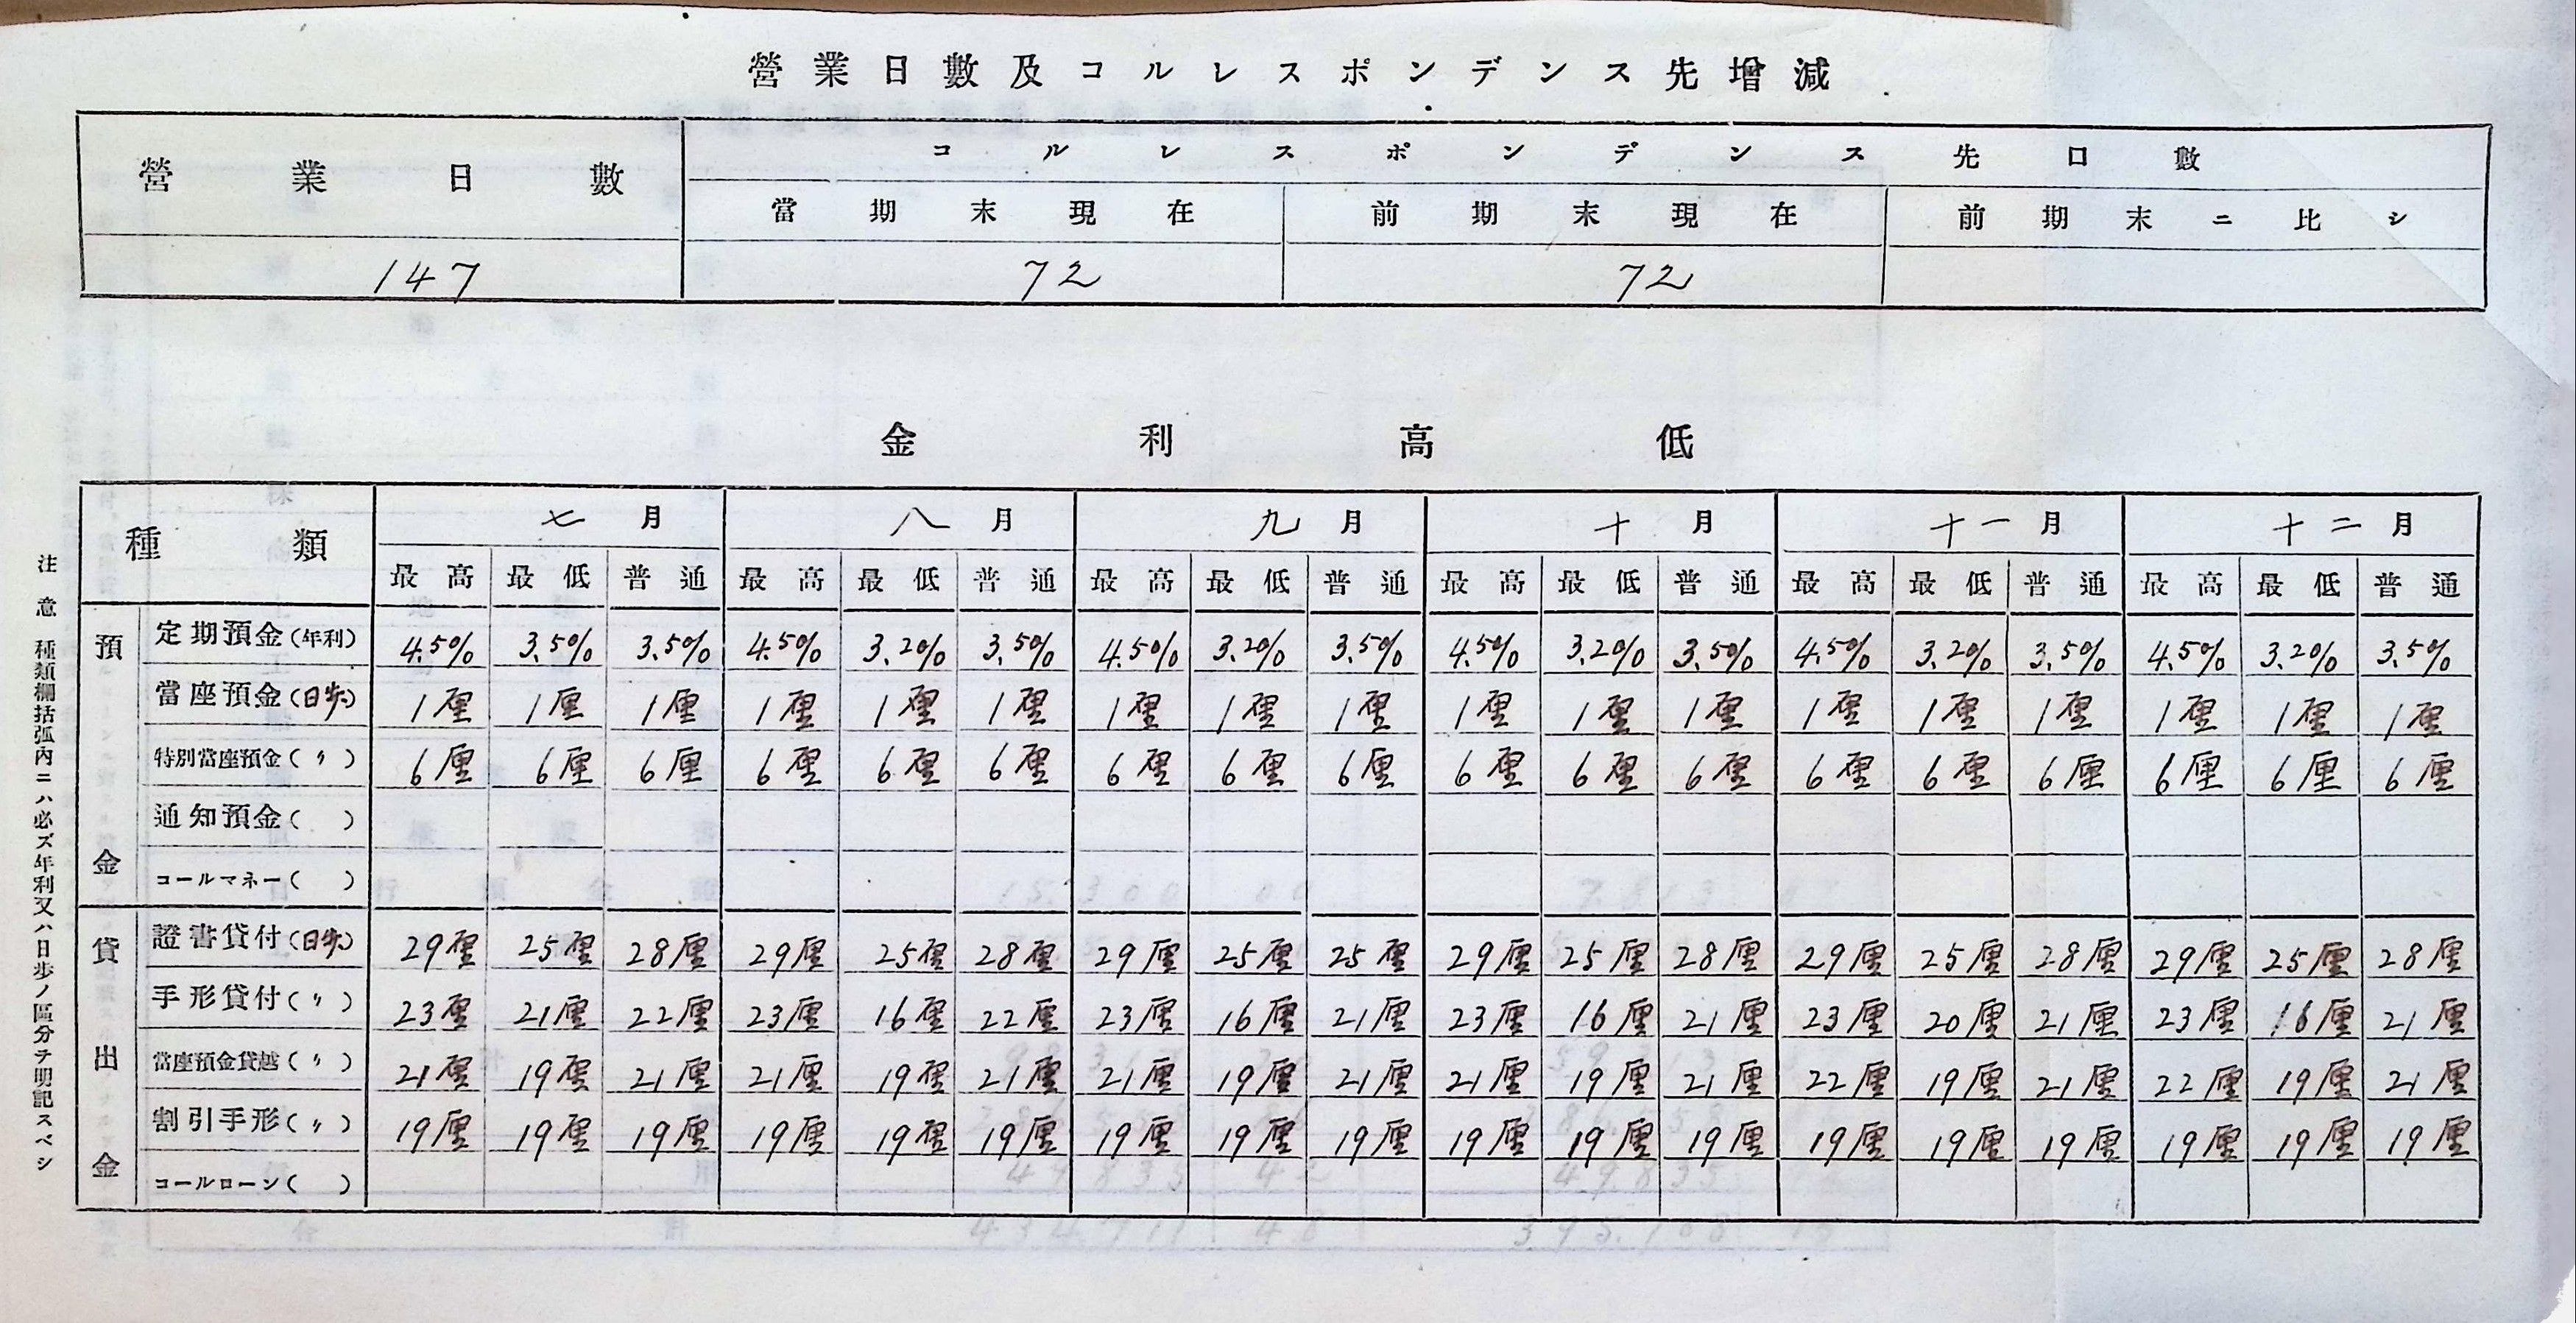 營業日數及コルレスポンデンス先增減
營業日數 コルレスポンデンス先口數
當期末現在 前期末現在 前期末ニ比シ
147 72 72
金利高低
種類 七月 八月 九月 十月 十一月 十二月
最高 最低 普通 最高 最低 普通 最高 最低 普通 最高 最低 普通 最高 最低 普通 最高 最低 普通
預金
定期預金(年利) 4.5% 3.5% 3.5% 4.5% 3.20% 3.5% 4.5% 3.20% 3.5% 4.5% 3.20% 3.5% 4.5% 3.20% 3.5% 4.5% 3.20% 3.5%
當座預金(日歩) 1厘 1厘 1厘 1厘 1厘 1厘 1厘 1厘 1厘 1厘 1厘 1厘 1厘 1厘 1厘 1厘 1厘 1厘
特別當座預金(〃) 6厘 6厘 6厘 6厘 6厘 6厘 6厘 6厘 6厘 6厘 6厘 6厘 6厘 6厘 6厘 6厘 6厘 6厘
通知預金( )
コールマネー( )
貸出金
證書貸付(日歩) 29厘 25厘 28厘 29厘 25厘 28厘 29厘 25厘 25厘 29厘 25厘 28厘 29厘 25厘 28厘 29厘 25厘 28厘
手形貸付(〃) 23厘 21厘 22厘 23厘 16厘 22厘 23厘 16厘 21厘 23厘 16厘 21厘 23厘 20厘 21厘 23厘 16厘 21厘
當座預金貸越(〃) 21厘 19厘 21厘 21厘 19厘 21厘 21厘 19厘 21厘 21厘 19厘 21厘 22厘 19厘 21厘 22厘 19厘 21厘
割引手形(〃) 19厘 19厘 19厘 19厘 19厘 19厘 19厘 19厘 19厘 19厘 19厘 19厘 19厘 19厘 19厘 19厘 19厘 19厘
コールローン( )
注意 種類欄括弧內ニハ必ズ年利又ハ日歩ノ區分ヲ明記スベシ